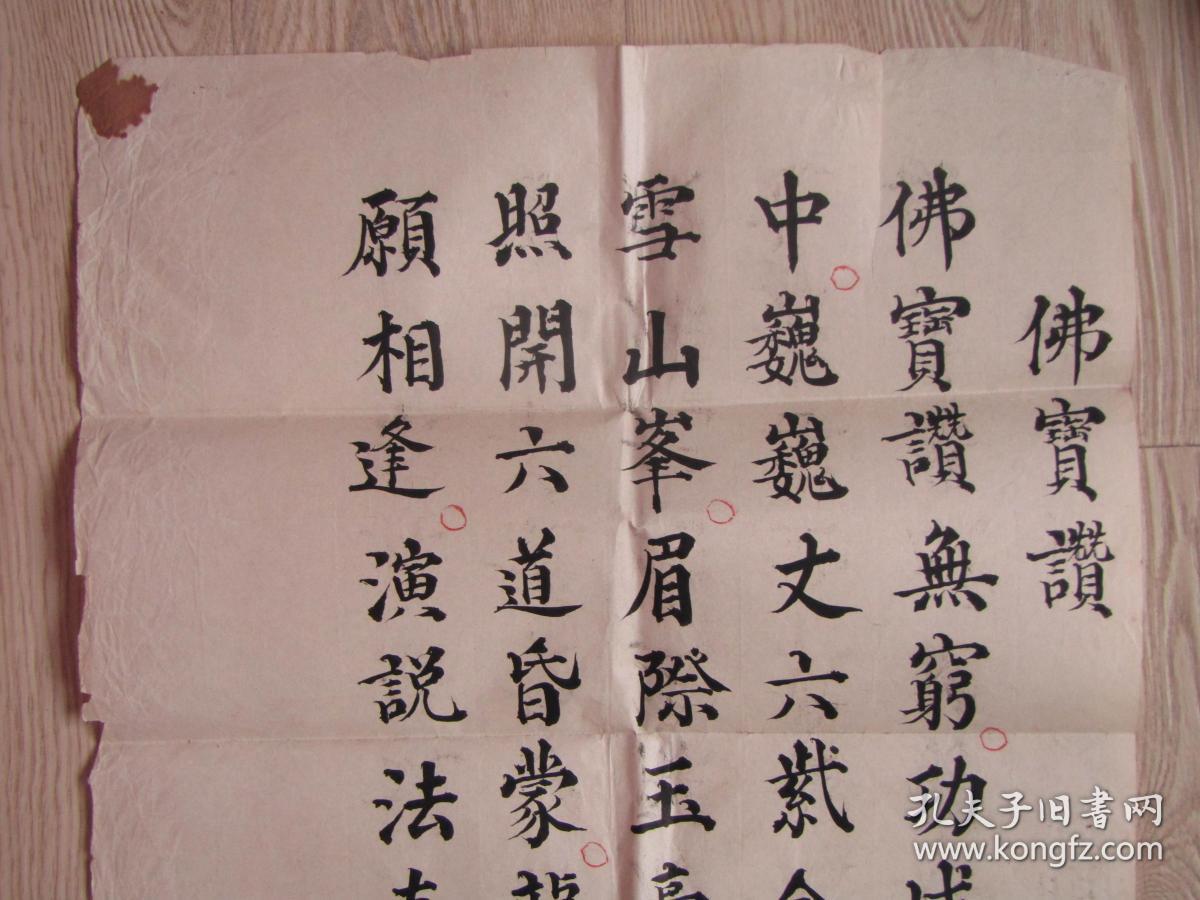 佛寶讚
佛寶讚無窮功成
中巍巍丈六紫金
雪山峯眉際玉毫
照開六道昏蒙龍
願相逢演説法真
孔夫子旧書网
www.kongfz.com